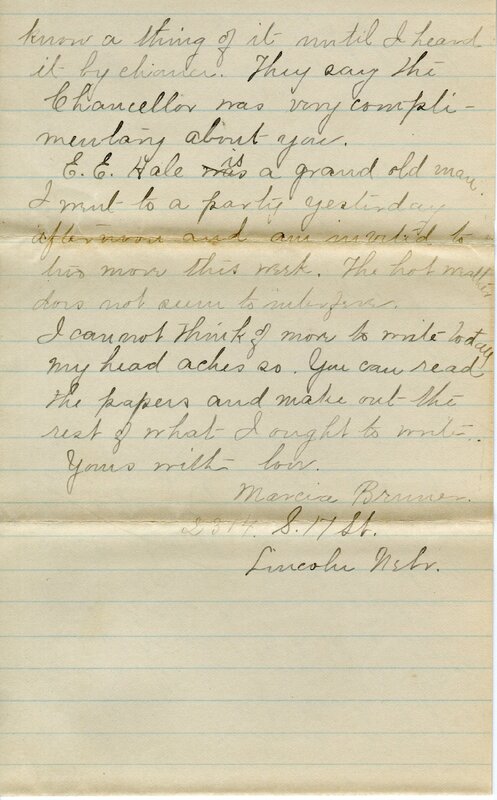 know a thing of it until I heard
it by chance. They say the
Chancellor was very compli-
mentary about you.
E. E. Hale was is a grand old man.
I went to a party yesterday
afternoon and am invited to
two more this week. The hot weather
does not seem to interfere.
I cannot think of more to write today
my head aches so. You can read
the papers and make out the
rest of what I ought to write.
Yours with love.
Marcia Bruner.
2314. S. 17 St.
Lincoln Nebr.